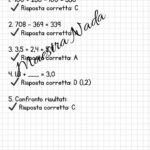 ✓ Risposta corretta: C
2. 708 - 369 + 339
✓ Risposta corretta: C
3. 3,5 + 2,4
✓ Risposta corretta: A
4. 1,8 + ___ = 3,0
✓ Risposta corretta: D (1,2)
5. Confronto risultati:
✓ Risposta corretta: C
Maestra Nada